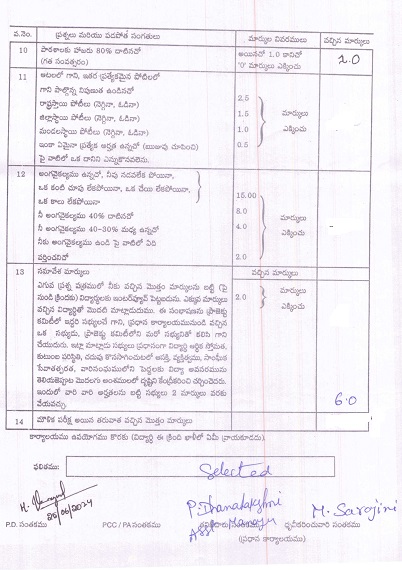 వ.నెం. ప్రశ్నలు మరియు పదపోత సంగతులు మార్కుల వివరములు వచ్చిన మార్కులు
10 పాఠశాలకు హాజరు 80% దాటినచో అయినచో 1.0 కానిచో 1.0
(గత సంవత్సరం) '0' మార్కులు ఎక్కించు
11 ఆటలలో గాని, ఇతర ప్రత్యేకమైన పోటీలలో
గాని పాల్గొన్న నిపుణుత ఉండినచో
రాష్ట్రస్థాయి పోటీలు (నెగ్గినా, ఓడినా) 2.5
జిల్లాస్థాయి పోటీలు (నెగ్గినా, ఓడినా) 1.5 మార్కులు
మండలస్థాయి పోటీలు (నెగ్గినా, ఓడినా) 1.0 ఎక్కించు
ఇంకా ఏమైనా ప్రత్యేక అర్హత ఉన్నచో (ఋజువు చూపించి) 0.5
పై వాటిలో ఒక దానిని ఎన్నుకొనవలెను.
12 అంగవైకల్యము ఉన్నచో, నీవు నడవలేక పోయినా,
ఒక కంటి చూపు లేకపోయినా, ఒక చేయి లేకపోయినా, 15.00
ఒక కాలు లేకపోయినా
నీ అంగవైకల్యము 40% దాటినచో 8.0 మార్కులు
నీ అంగవైకల్యము 40-30% మధ్య ఉన్నచో 4.0 ఎక్కించు
నీకు అంగవైకల్యము ఉండి పై వాటిలో ఏది
వర్తించనిచో 2.0
13 సమావేశ మార్కులు వచ్చిన మార్కులు
ఎగువ ప్రశ్న పత్రములో నీకు వచ్చిన మొత్తం మార్కులను బట్టి (పై 2.0 మార్కులు
నుండి క్రిందకు) విద్యార్థులకు ఇంటర్‌వ్యూకి పెట్టబడును. ఎక్కువ మార్కులు ఎక్కించు
వచ్చిన విద్యార్థితో మొదట మాట్లాడుదుము. ఈ సంభాషణను ప్రాజెక్టు
కమిటీలో ఇద్దరి సభ్యులచే గాని, ప్రధాన కార్యాలయమునుండి వచ్చిన
ఒక సభ్యుడు, ప్రాజెక్ట్ కమిటీలోని మరో సభ్యునితో కలిసి గాని
చేయుదురు. ఇట్లా మాట్లాడు సభ్యులు ప్రధానంగా విద్యార్థి ఆర్థిక స్తోమత,
కుటుంబ పరిస్థితి, చదువు కొనసాగించుటలో ఆసక్తి, వ్యక్తిత్వము, సాంఘీక
సేవాతత్పరత, వారిసంఘములోని పెద్దలకు విద్యా అవసరమును
తెలియజెప్పుట మొదలగు అంశములలో దృష్టిని కేంద్రీకరించి చర్చించెదరు.
ఇందులో వారి వారి అర్హతలను బట్టి సభ్యులు 2 మార్కులు వరకు
వేయవచ్చు. 6.0
14 మౌళిక పరీక్ష అయిన తరువాత వచ్చిన మొత్తం మార్కులు
కార్యాలయము ఉపయోగము కొరకు (విద్యార్థి ఈ క్రింది ఖాళీలో ఏమీ వ్రాయకూడదు).
ఫలితము: Selected
25/06/2024 P. Dhanalakshmi M. Sarojini
P.D. సంతకము PCC / PA సంతకము Asst Manager ధృవీకరించువారి సంతకము
(ప్రధాన కార్యాలయము)